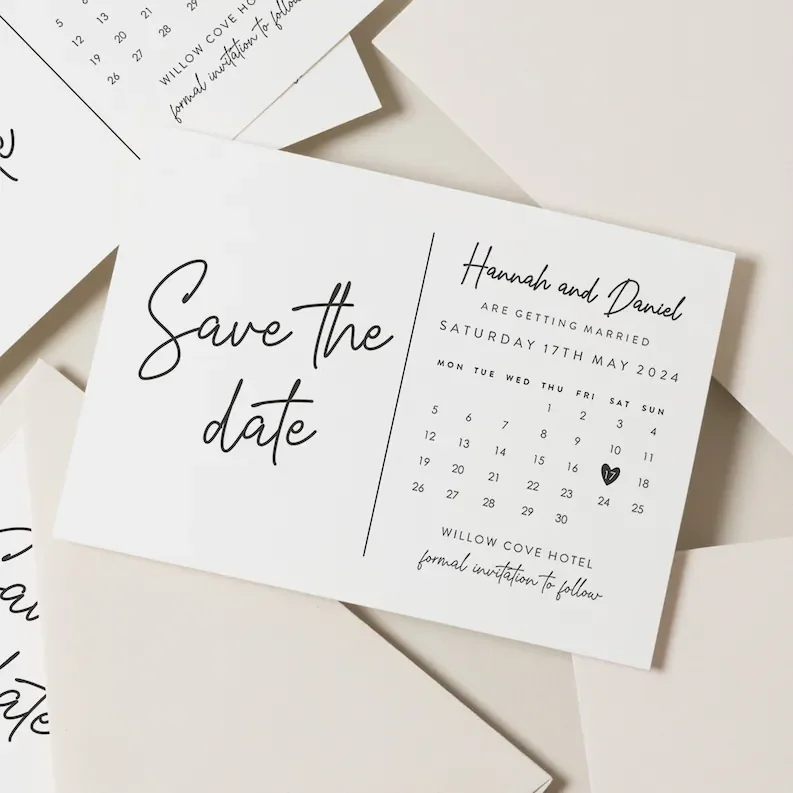 5 12 13 20 21 28 29
19 26 27
WILLOW COVE HO
formal invitation to follow
Save the
date
Hannah and Daniel
ARE GETTING MARRIED
SATURDAY 17TH MAY 2024
MON TUE WED THU FRI SAT SUN
1 2 3 4
5 6 7 8 9 10 11
12 13 14 15 16 17 18
19 20 21 22 23 24 25
26 27 28 29 30
WILLOW COVE HOTEL
formal invitation to follow